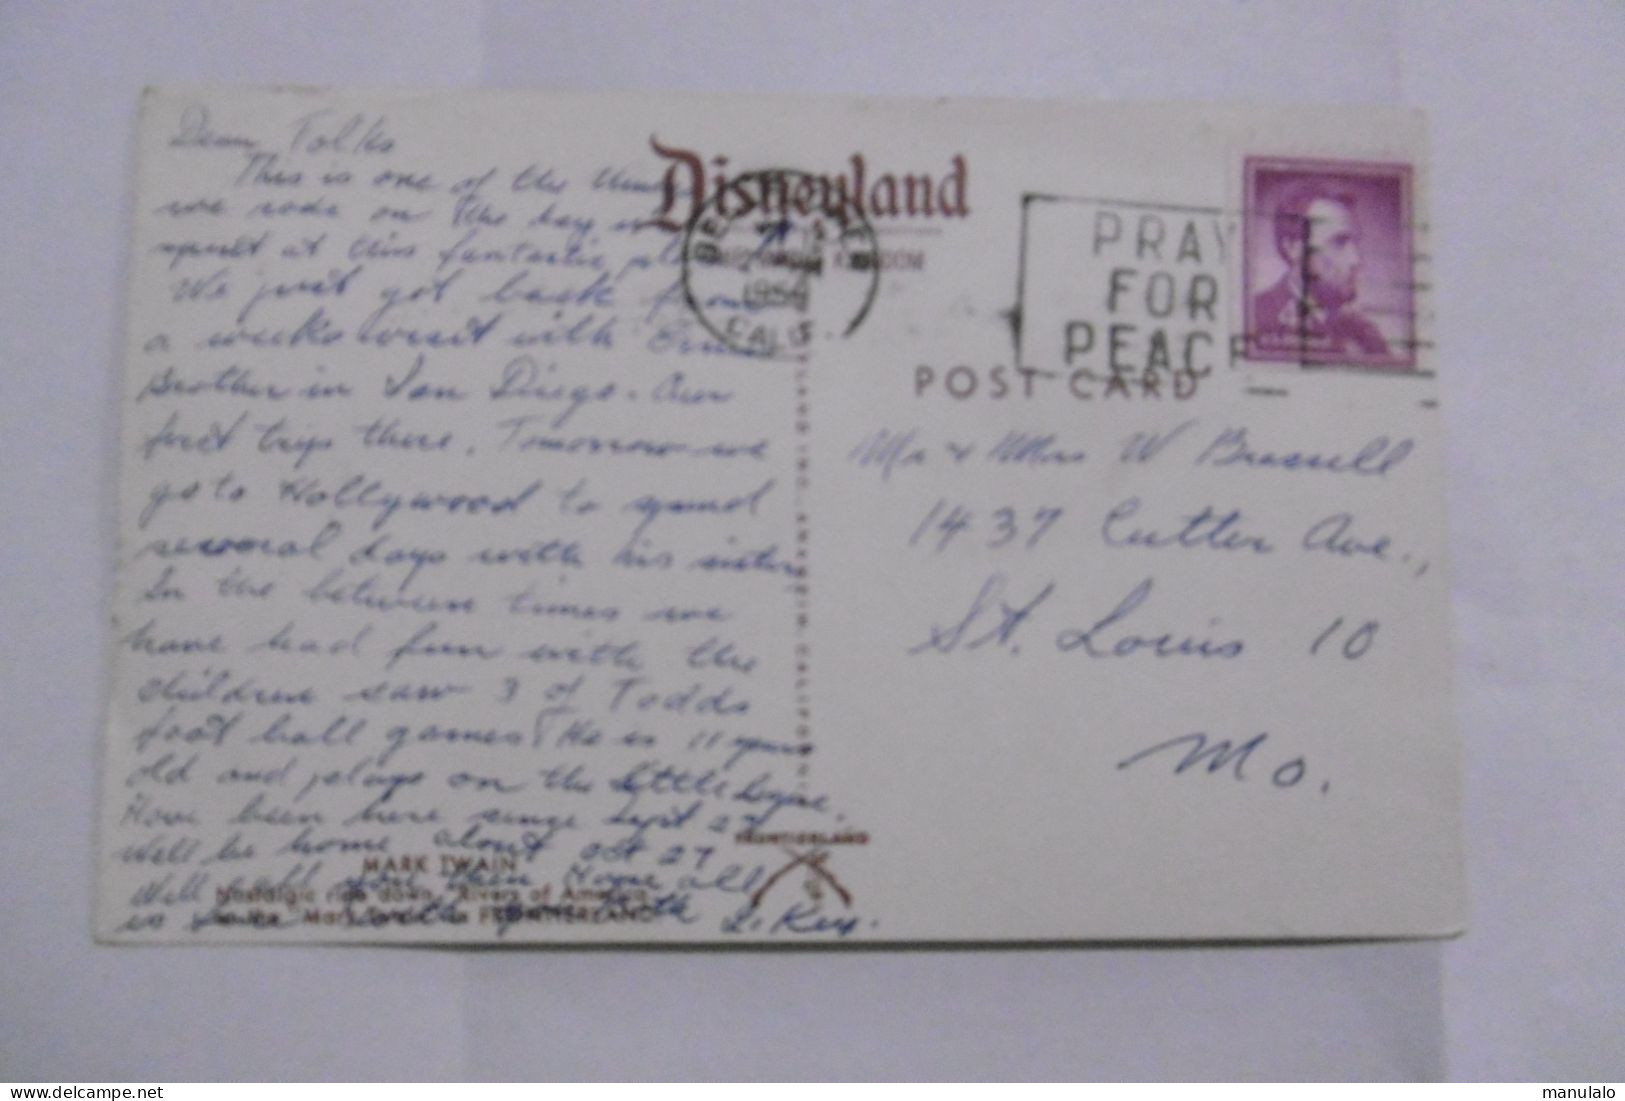 Dear Folks
This is one of the things
we rode on the day we
spent at this fantastic place
We just got back from
a weeks visit with
Brother in San Diego. Our
first trip there. Tomorrow we
go to Hollywood to spend
several days with his sister
In the between times we
have had fun with the
children saw 3 of Todds
foot ball games. He is 11 years
old and plays on the little league.
Have been here since Sept 27
Well be home about Oct 27
Well call you then Hope all
is well with you both L. Rex.
MARK TWAIN
Nostalgic ride down "Rivers of America"
on the "Mark Twain" in FRONTIERLAND
FRONTIERLAND
Disneyland
KINGDOM
1956
CALIF.
PRAY
FOR
PEACE
POST CARD
Mr & Mrs W Brassell
1437 Cutter Ave.,
St. Louis 10
Mo.
manulalo